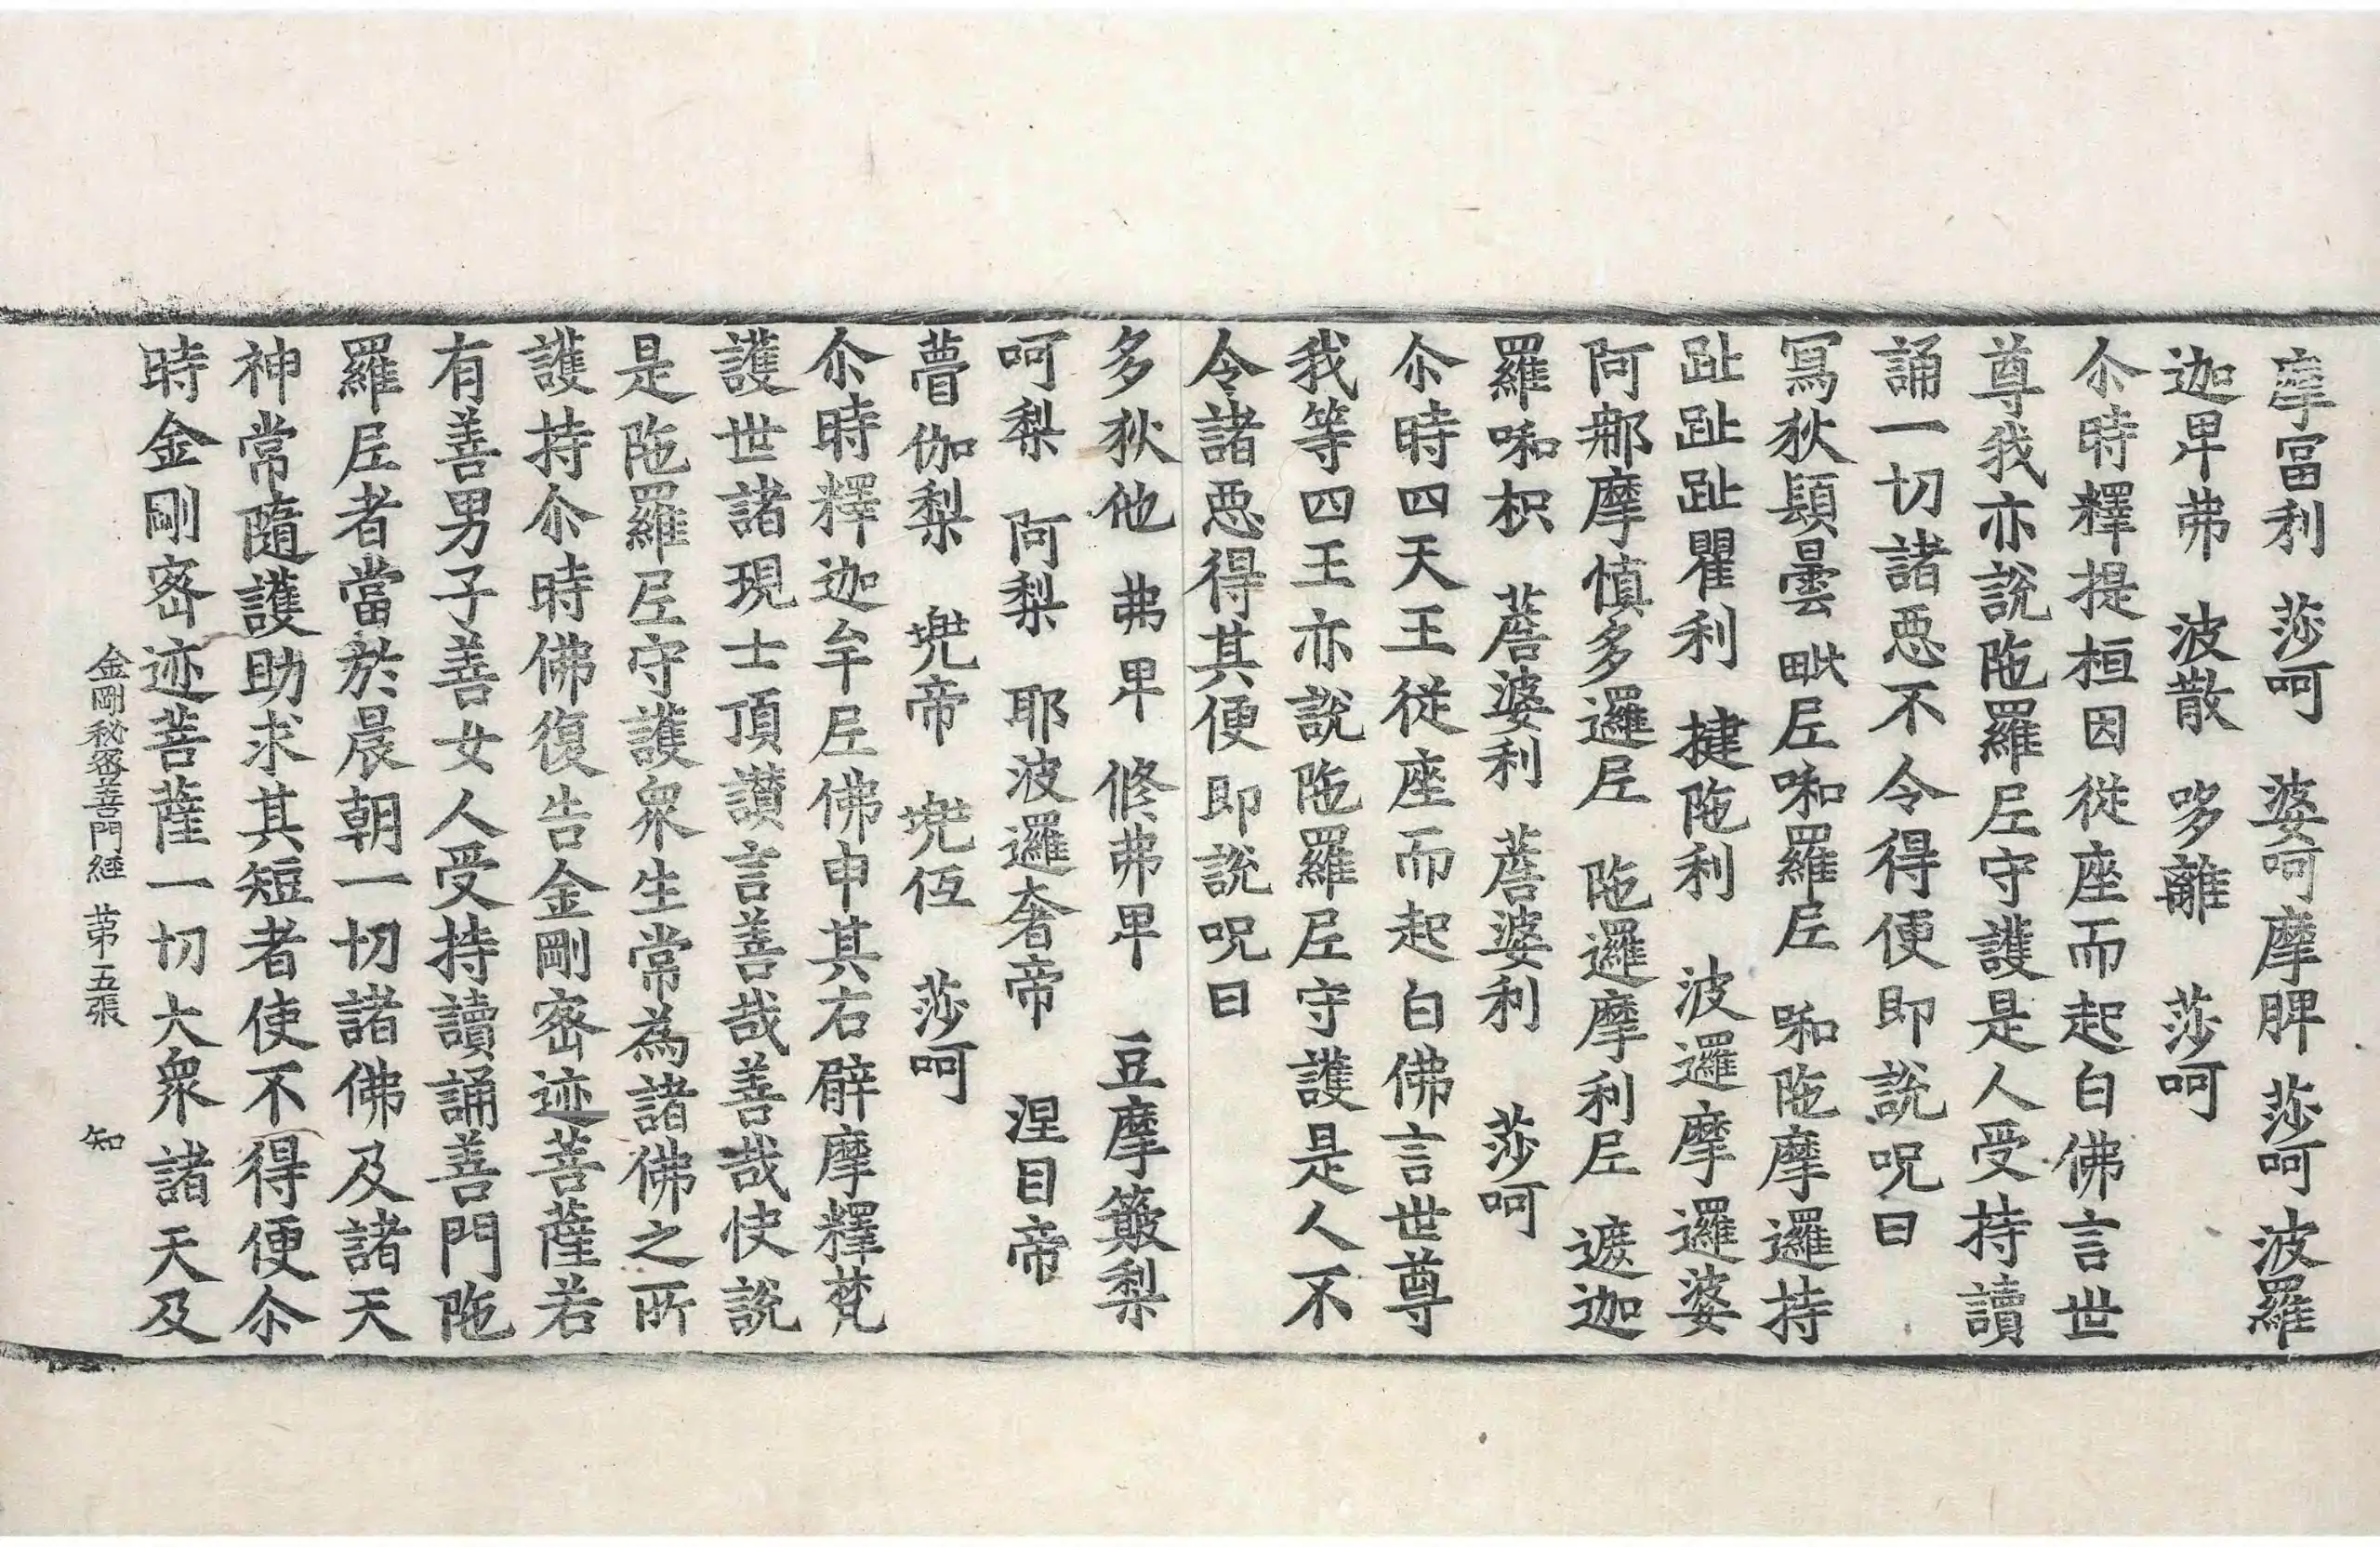 摩富利 莎呵 婆呵摩脾 莎呵 波羅
迦卑弗 波散 哆離 莎呵
尒時釋提桓因從座而起白佛言世
尊我亦說陁羅𡰱守護是人受持讀
誦一切諸惡不令得便即說呪曰
寫狄𩓥曇 毗𡰱啝羅𡰱 啝陁摩邏持
趾趾趾瞿利 揵陁利 波邏摩邏婆
阿那摩慎多邏𡰱 陁邏摩利𡰱 遮迦
羅啝枳 菩婆利 菩婆利 莎呵
尒時四天王從座而起白佛言世尊
我等四王亦說陁羅𡰱守護是人不
令諸惡得其便即說呪曰
多狄他 弗卑 修弗卑 豆摩簸梨
呵梨 阿梨 耶波邏奢帝 涅目帝
瞢伽梨 兠帝 兠仾 莎呵
尒時釋迦牟𡰱佛申其右臂摩釋梵
護世諸現士頂讚言善哉善哉快說
是陁羅𡰱守護衆生常為諸佛之所
護持尒時佛復告金剛密迹菩薩若
有善男子善女人受持讀誦善門陁
羅𡰱者當於晨朝一切諸佛及諸天
神常隨護助求其短者使不得便尒
時金剛密迹菩薩一切大衆諸天及
金剛秘密善門經 苐五張 知